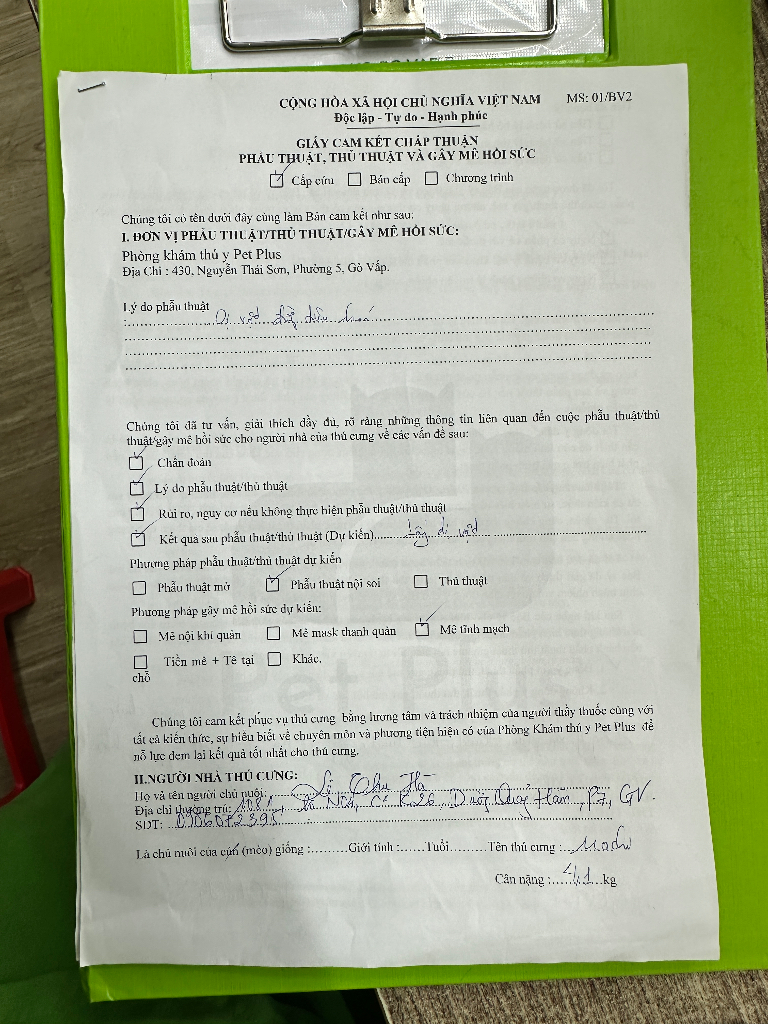 CỘNG HÒA XÃ HỘI CHỦ NGHĨA VIỆT NAM MS: 01/BV2
Độc lập - Tự do - Hạnh phúc
GIẤY CAM KẾT CHẤP THUẬN
PHẪU THUẬT, THỦ THUẬT VÀ GÂY MÊ HỒI SỨC
Cấp cứu Bán cấp Chương trình
Chúng tôi có tên dưới đây cùng làm Bản cam kết như sau:
I. ĐƠN VỊ PHẪU THUẬT/THỦ THUẬT/GÂY MÊ HỒI SỨC:
Phòng khám thú y Pet Plus
Địa Chỉ : 430, Nguyễn Thái Sơn, Phường 5, Gò Vấp.
Lý do phẫu thuật
: Dị vật tiêu hoá
Chúng tôi đã tư vấn, giải thích đầy đủ, rõ ràng những thông tin liên quan đến cuộc phẫu thuật/thủ
thuật/gây mê hồi sức cho người nhà của thú cưng về các vấn đề sau:
Chẩn đoán
Lý do phẫu thuật/thủ thuật
Rủi ro, nguy cơ nếu không thực hiện phẫu thuật/thủ thuật
Kết quả sau phẫu thuật/thủ thuật (Dự kiến) dị vật
Phương pháp phẫu thuật/thủ thuật dự kiến
Phẫu thuật mở Phẫu thuật nội soi Thủ thuật
Phương pháp gây mê hồi sức dự kiến:
Mê nội khí quản Mê mask thanh quản Mê tĩnh mạch
Tiền mê + Tê tại Khác.
chỗ
Pet Plus
Chúng tôi cam kết phục vụ thú cưng bằng lương tâm và trách nhiệm của người thầy thuốc cùng với
tất cả kiến thức, sự hiểu biết về chuyên môn và phương tiện hiện có của Phòng Khám thú y Pet Plus để
nỗ lực đem lại kết quả tốt nhất cho thú cưng.
II.NGƯỜI NHÀ THÚ CƯNG:
Họ và tên người chủ nuôi: Lê Thu Hà
Địa chỉ thường trú: Hàm, P7, GV.
SĐT:
Là chủ nuôi của cún (mèo) giống :.........Giới tính :......Tuổi.........Tên thú cưng :
Cân nặng : 4,1 kg